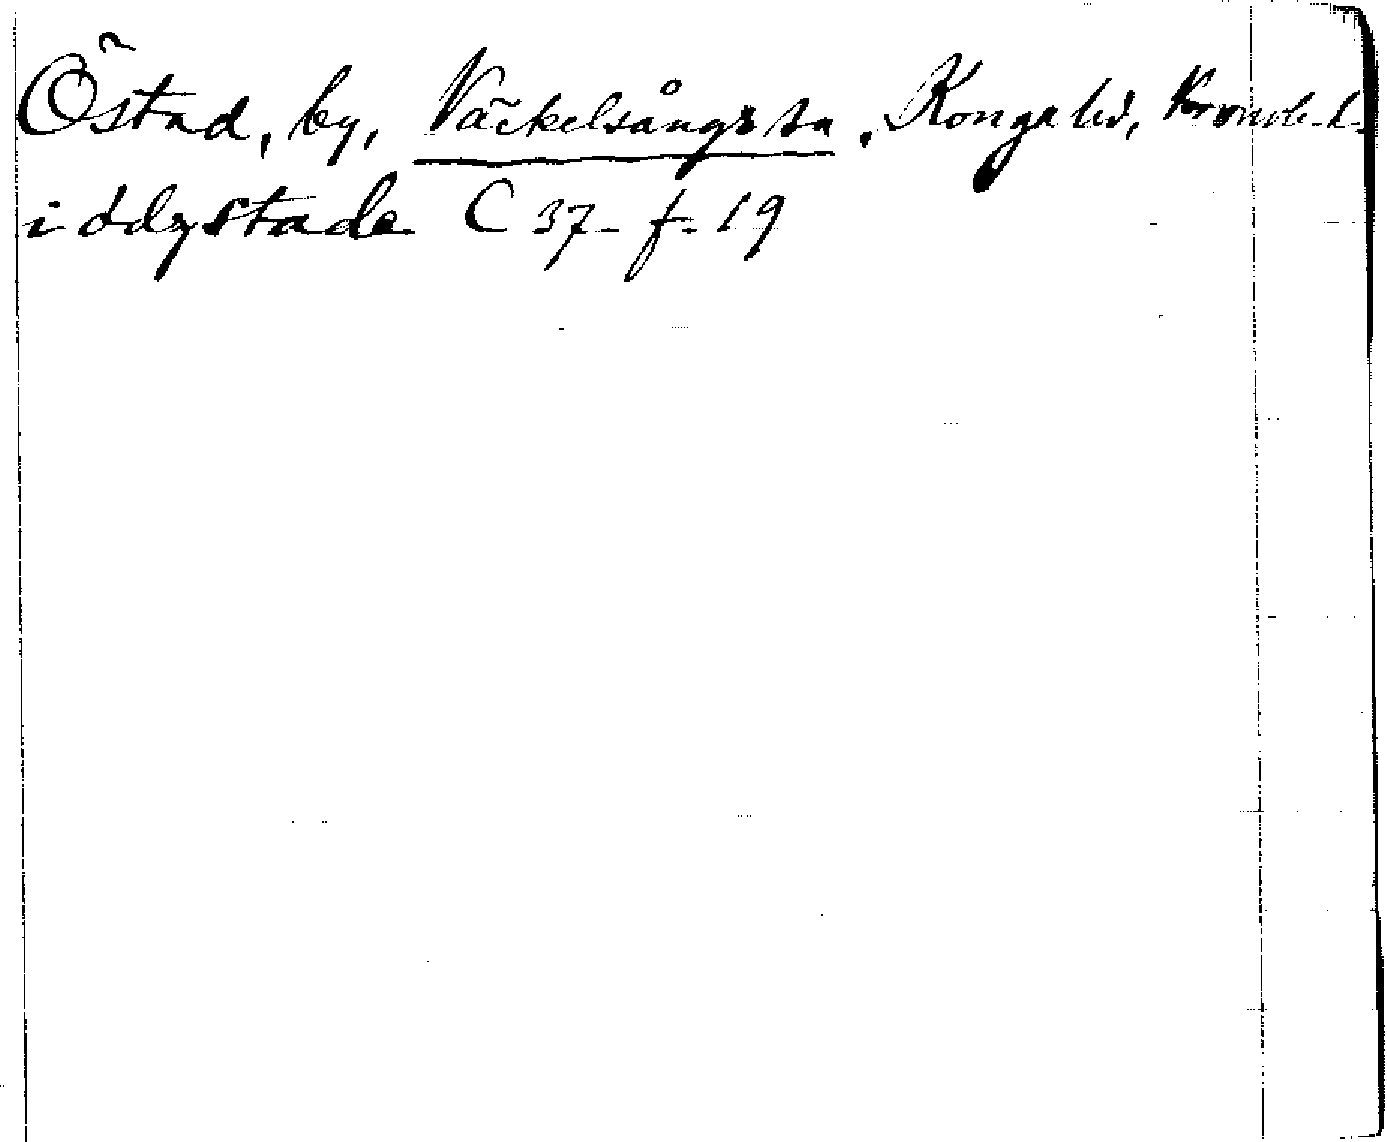 Östad, by, Väckelsångs sn, Konga hd, Kronob. l.
i ødzstade C 37 f. 19